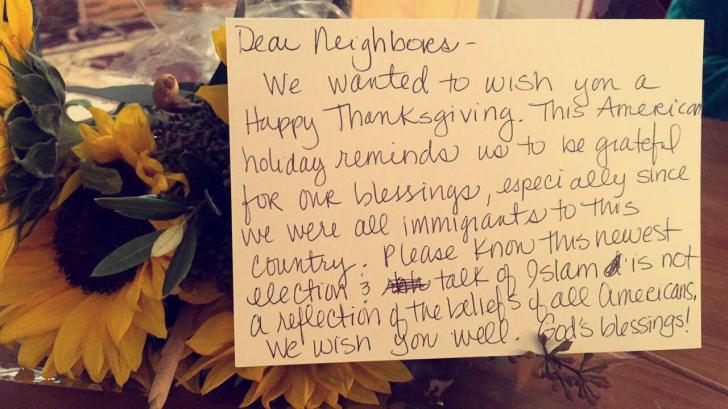 Dear Neighbores -
We wanted to wish you a
Happy Thanksgiving. This American
holiday reminds us to be grateful
for our blessings, especially since
we were all immigrants to this
country. Please know this newest
election & talk of Islam is not
a reflection of the beliefs of all Americans.
We wish you well. God's blessings!